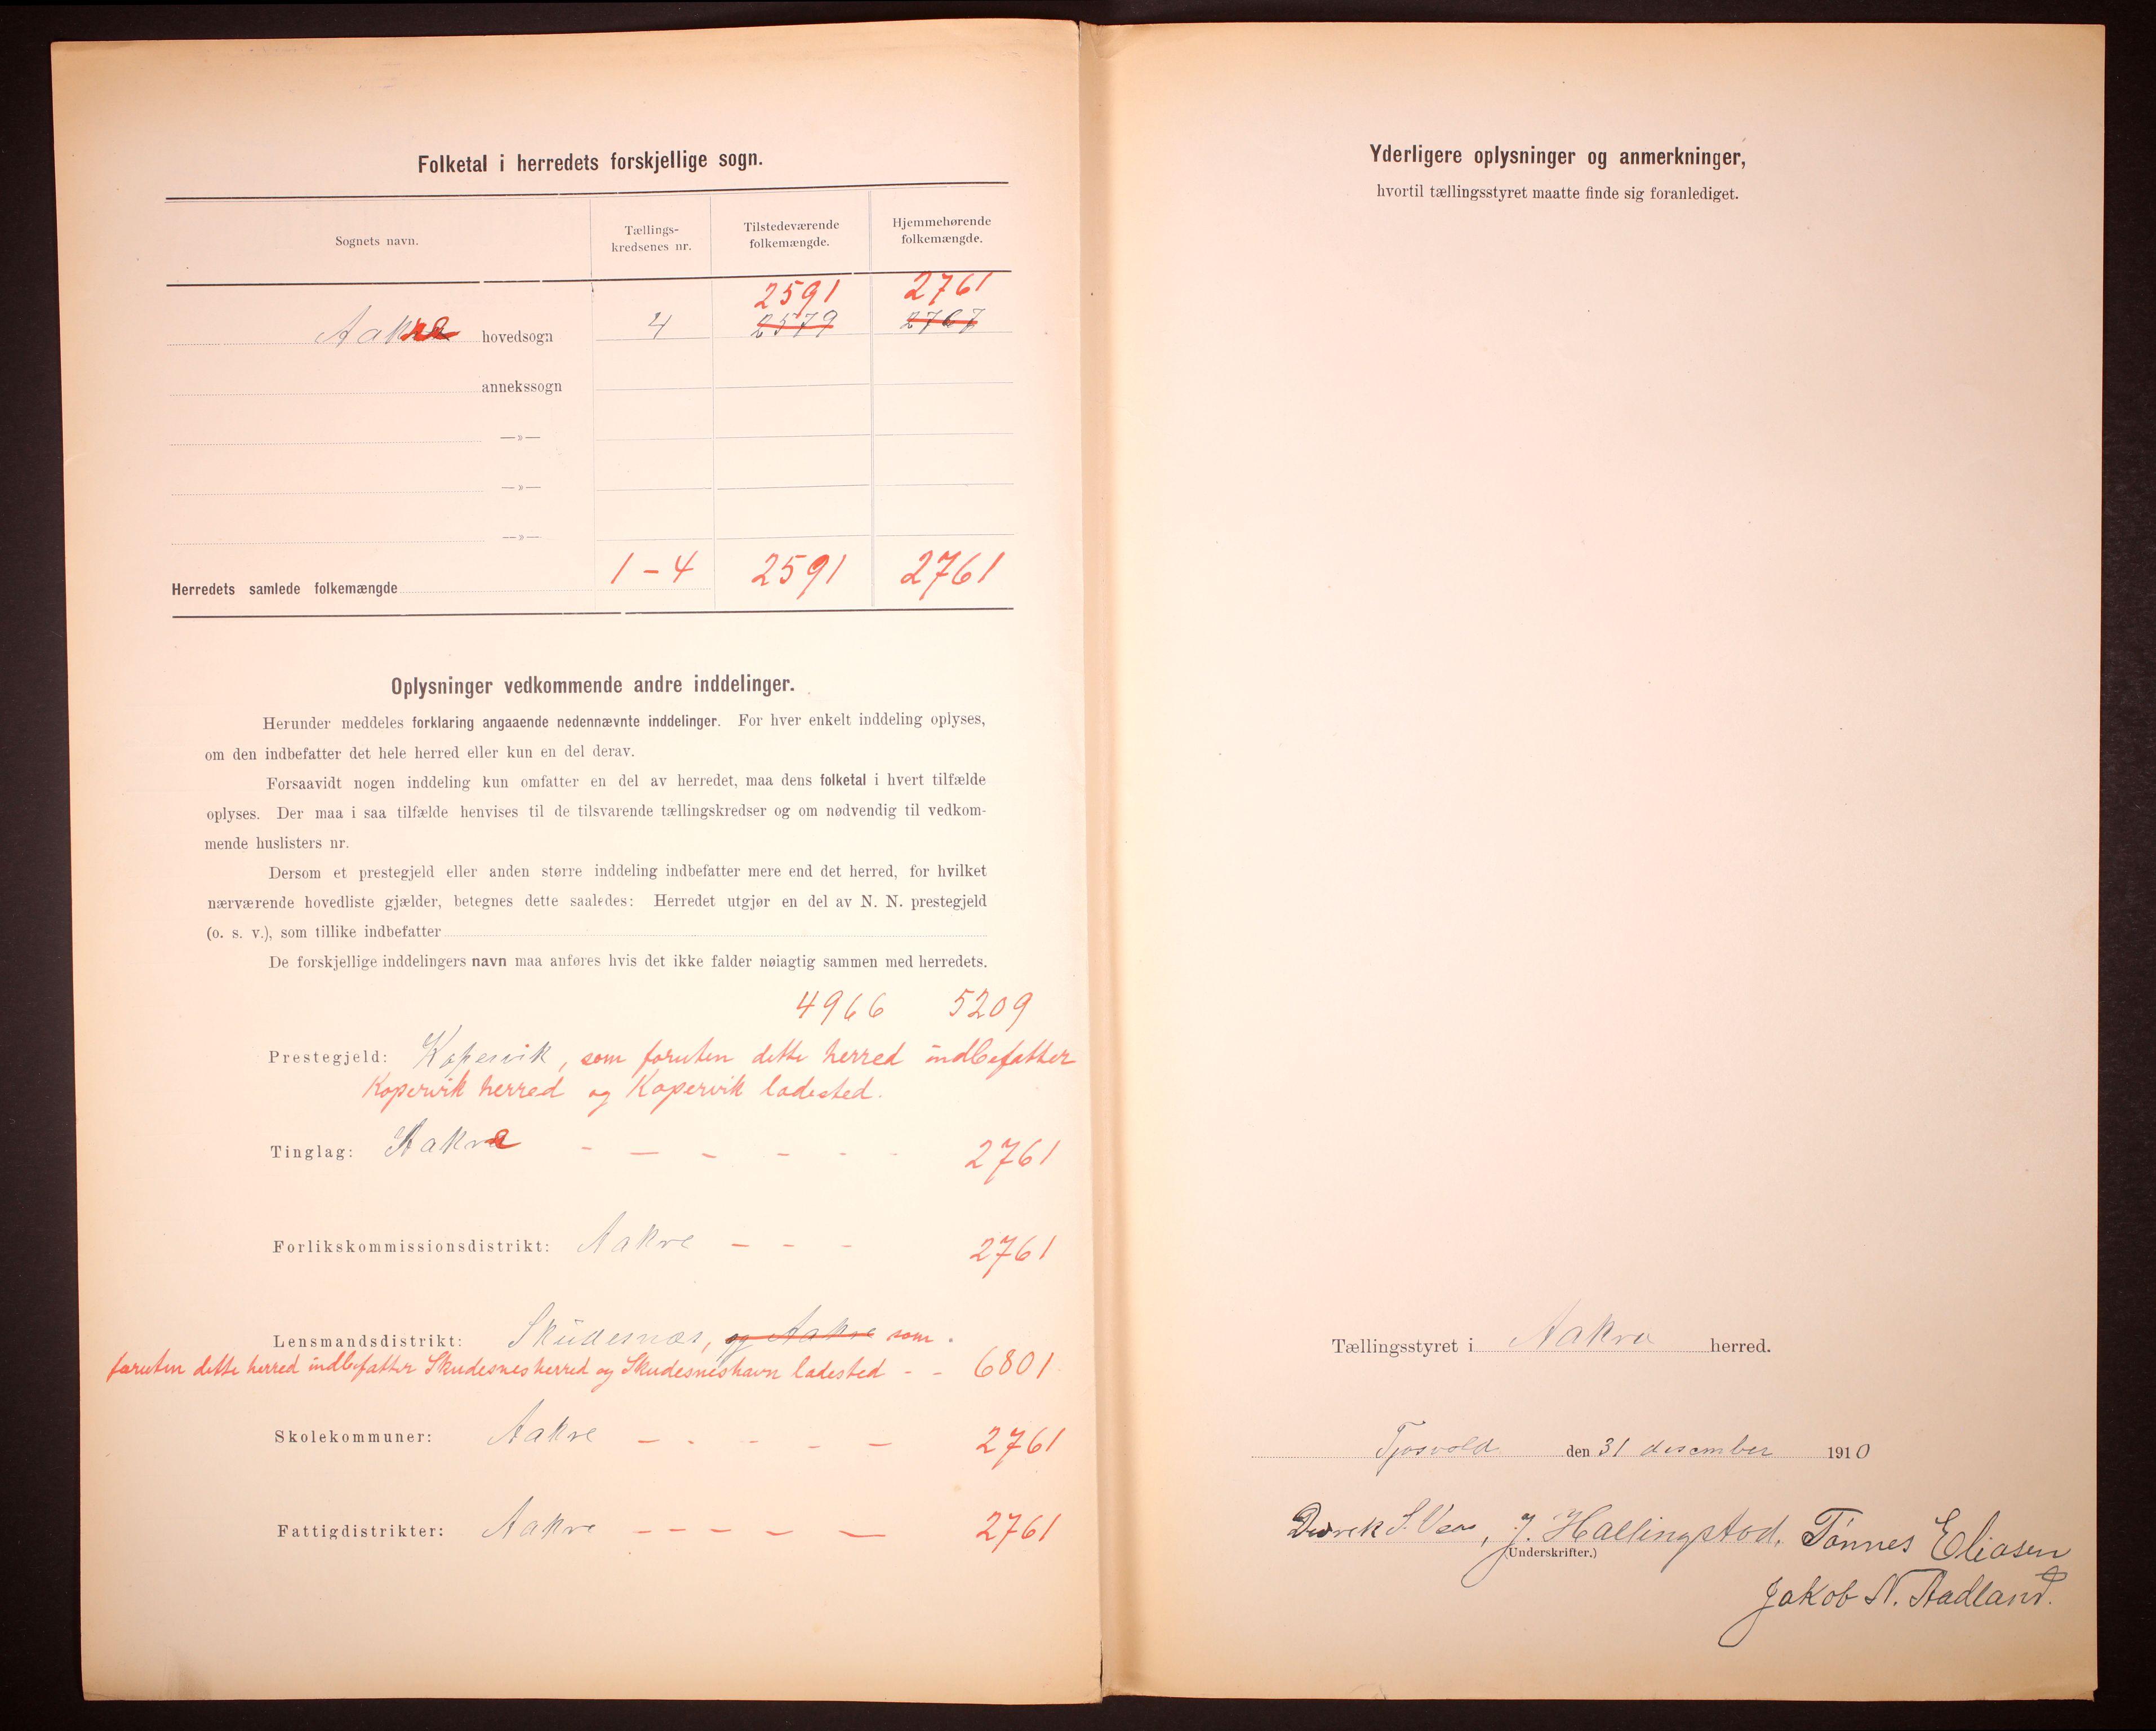 Folketal i herredets forskjellige sogn.
Sognets navn. Tællings- kredsenes nr. Tilstedeværende folkemængde. Hjemmehørende folkemængde.
2591 2761
Aakra hovedsogn 4 2579 2767
annekssogn
—»—
—»—
—»—
Herredets samlede folkemængde 1-4 2591 2761
Oplysninger vedkommende andre inddelinger.
Herunder meddeles forklaring angaaende nedennævnte inddelinger. For hver enkelt inddeling oplyses,
om den indbefatter det hele herred eller kun en del derav.
Forsaavidt nogen inddeling kun omfatter en del av herredet, maa dens folketal i hvert tilfælde
oplyses. Der maa i saa tilfælde henvises til de tilsvarende tællingskredser og om nødvendig til vedkom-
mende huslisters nr.
Dersom et prestegjeld eller anden større inddeling indbefatter mere end det herred, for hvilket
nærværende hovedliste gjælder, betegnes dette saaledes: Herredet utgjør en del av N. N. prestegjeld
(o. s. v.), som tillike indbefatter
De forskjellige inddelingers navn maa anføres hvis det ikke falder nøiagtig sammen med herredets.
4966 5209
Prestegjeld: Kopervik, som foruten dette herred indbefatter
Kopervik herred og Kopervik ladested.
Tinglag: Aakra - — - - - - 2761
Forlikskommissionsdistrikt: Aakre — - - 2761
Lensmandsdistrikt: Skudesnæs, og Aakre som
foruten dette herred indbefatter Skudesnes herred og Skudesneshavn ladested - - 6801
Skolekommuner: Aakre — - - - — 2761
Fattigdistrikter: Aakre - - - — — 2761
Yderligere oplysninger og anmerkninger,
hvortil tællingsstyret maatte finde sig foranlediget.
Tællingsstyret i Aakra herred.
Tjosvold den 31 desember 1910
J. Hallingstad. Tönnes Eliasen
(Underskrifter.)
Jakob N. Aadland.